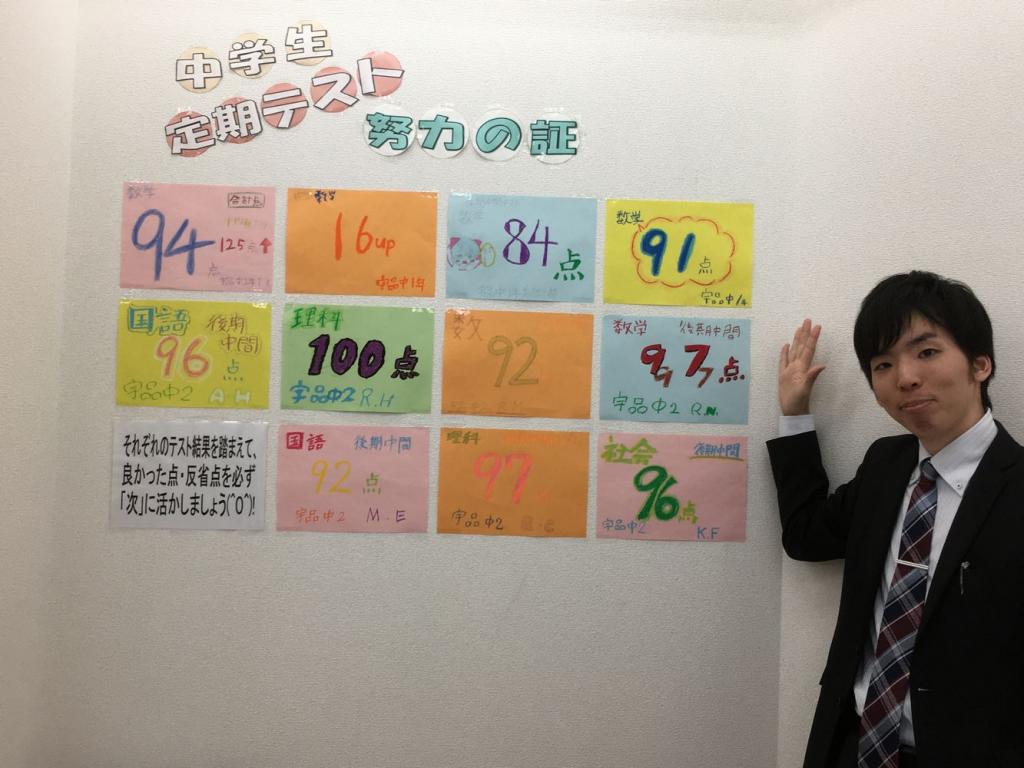 中学生
定期テスト
努力の証
数学
合計点
94
125点↑
点
数学
16up
宇品中1年
数学
84点
数学
91点
宇品中1年
国語
後期
中間
96点
宇品中2 A.H
理科
100点
宇品中2 R.H
数
92
数学 後期中間
97点
宇品中2 R.N.
それぞれのテスト結果を踏まえて、
良かった点・反省点を必ず
「次」に活かしましょう(^O^)!
国語 後期中間
92点
宇品中2 M.E
理科
97
宇品中2
社会 後期中間
96点
宇品中2 K.F